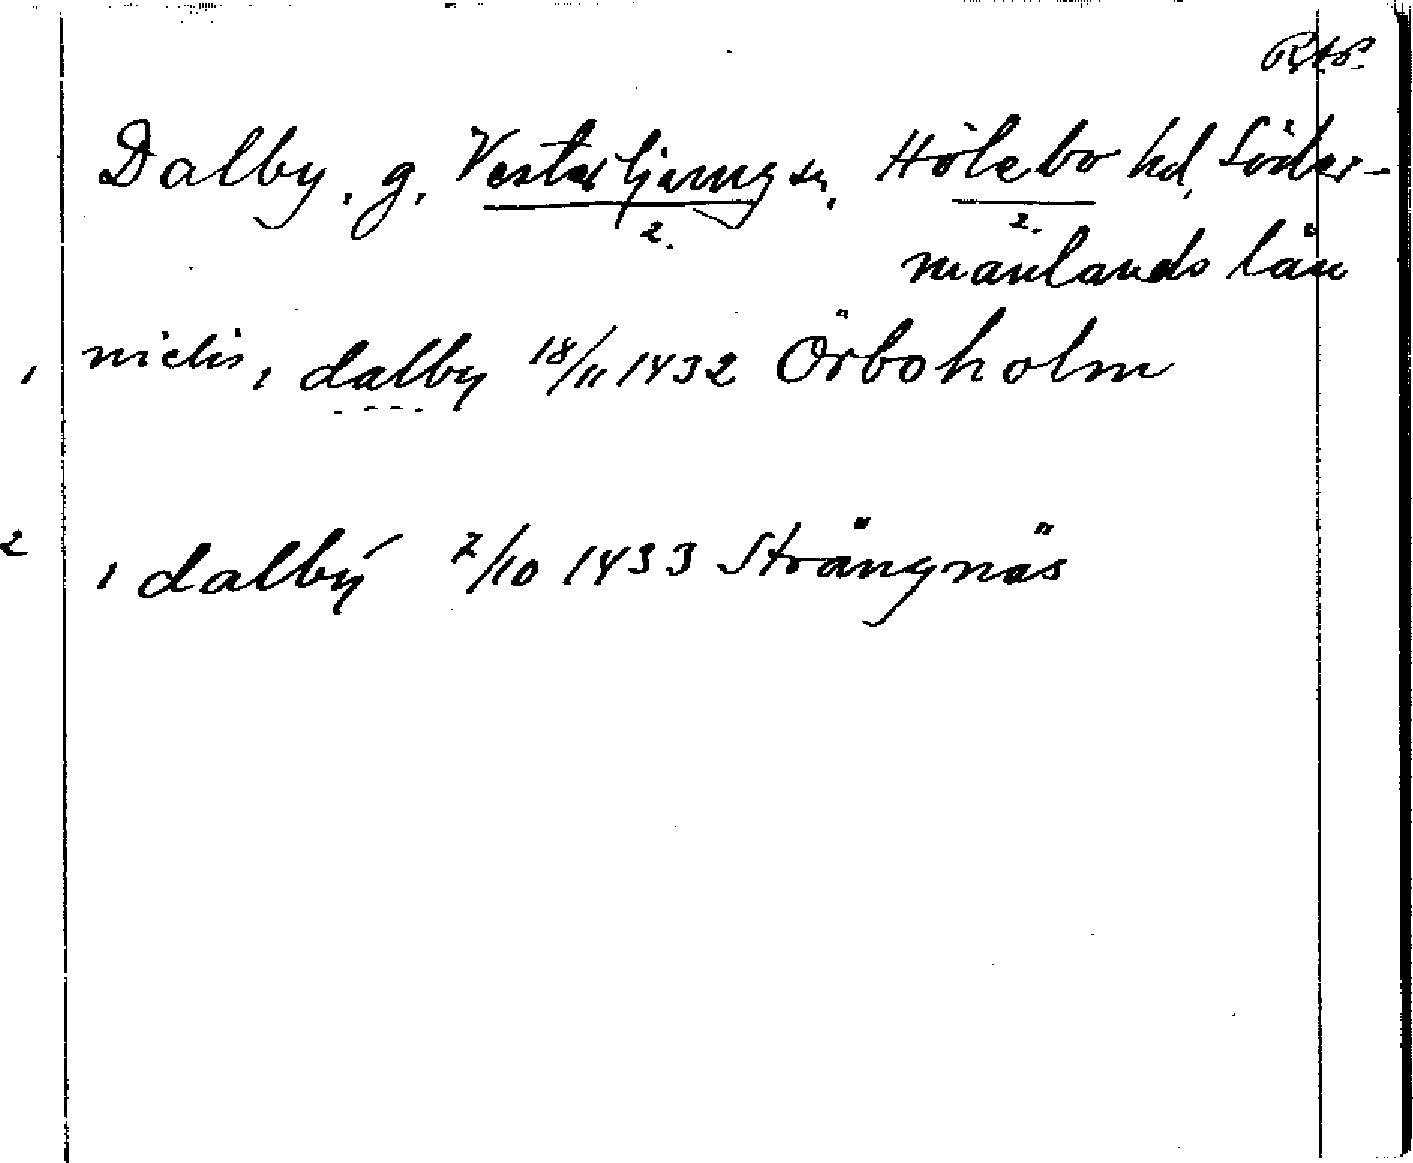 RAP.
Dalby, g. Vesterljung sn, Hölebo hd, Söder-
2. 2.
manlands län
1 niclis i dalby 18/11 1432 Örboholm
2 i dalbÿ 2/10 1433 Strängnäs